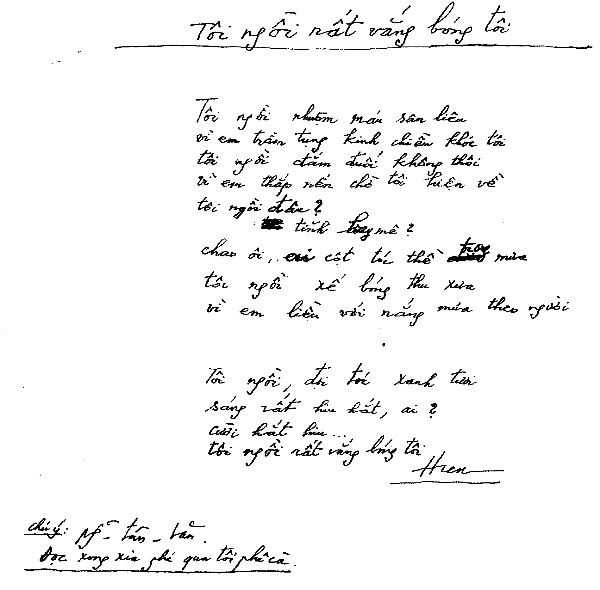 Tôi ngồi rất vắng bóng tôi
Tôi ngồi nhuộm máu sân liêu
vì em trầm tụng kinh chiều khóc tôi
tôi ngồi đắm đuối không thôi
vì em thắp nến chờ tôi hiện về
tôi ngồi đâu?
tỉnh hay mê?
chao ôi, cột tóc thề trong mưa
tôi ngồi xế bóng thu xưa
vì em liền với nắng mưa theo người
Tôi ngồi, đợi tóc xanh tươi
sáng rất hiu hắt, ai?
cười hắt hiu...
tôi ngồi rất vắng bóng tôi
Hien
chú ý:
Đọc xong xin ghé qua tôi phê cà.